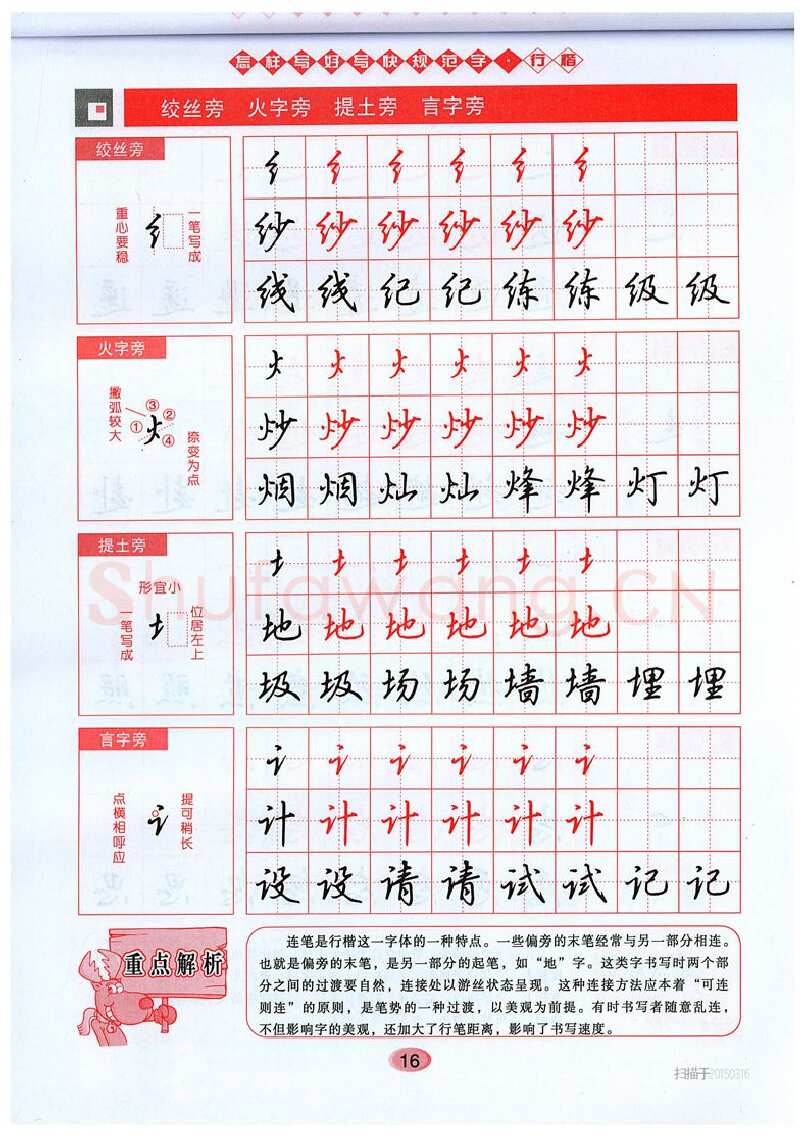 怎样写好写快规范字·行楷
绞丝旁 火字旁 提土旁 言字旁
绞丝旁
重心要稳
纟
一笔写成
纟 纟 纟 纟 纟 纟
纱 纱 纱 纱 纱 纱
线 线 纪 纪 练 练 级 级
火字旁
撇弧较大
① ③ ② ④
火
捺变为点
火 火 火 火 火 火
炒 炒 炒 炒 炒 炒
烟 烟 灿 灿 烽 烽 灯 灯
提土旁
形宜小
一笔写成
土
位居左上
土 土 土 土 土 土
地 地 地 地 地 地
圾 圾 场 场 墙 墙 埋 埋
Shufawang.CN
言字旁
点横相呼应
讠
提可稍长
讠 讠 讠 讠 讠 讠
计 计 计 计 计 计
设 设 请 请 试 试 记 记
重点解析
连笔是行楷这一字体的一种特点。一些偏旁的末笔经常与另一部分相连。
也就是偏旁的末笔，是另一部分的起笔，如“地”字。这类字书写时两个部
分之间的过渡要自然，连接处以游丝状态呈现。这种连接方法应本着“可连
则连”的原则，是笔势的一种过渡，以美观为前提。有时书写者随意乱连，
不但影响字的美观，还加大了行笔距离，影响了书写速度。
16
扫描于20150316